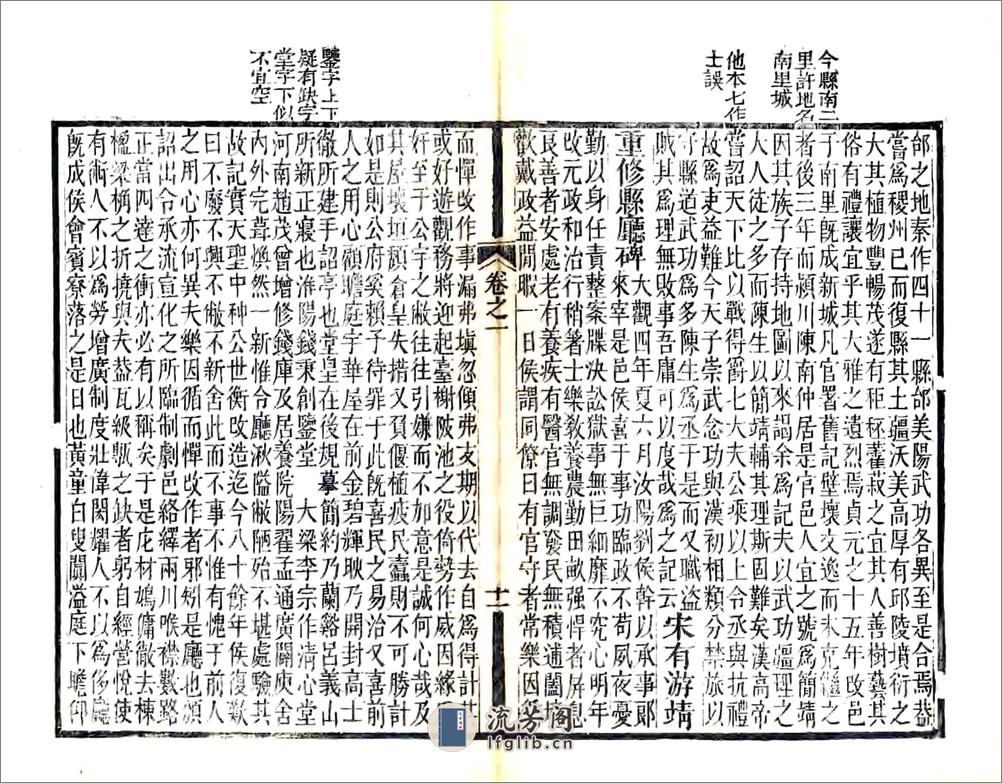 今縣南二
里許地名
南里城
他本七作
士誤
邰之地秦作四十一縣邰美陽武功各異至是合焉葢
嘗爲稷州已而復縣其土疆沃美高厚有邱陵墳衍之
大其植物豐暢茂遂有秬秠藿菽之宜其人善樹蓺其
俗有禮讓宜乎其大雅之遺烈焉貞元之十五年改邑
于南里旣成新城凡官署舊記壁壞文逸而未克繼之
者後三年而潁川陳南仲居是官邑人宜之號爲簡靖
因其族子存持地圖以來謁余爲記夫以武功疆理之
大人徒之多而陳生以簡靖輔其理斯固難矣漢高帝
嘗詔天下比以戰得爵七大夫公乘以上令丞與抗禮
故爲吏益難今天子崇武念功與漢初相類分禁旅以
守縣道武功爲多陳生爲丞于是而又職盜
賊其爲理無敗事吾庸可以度哉爲之記云 宋有游靖
重修縣廳碑 大觀四年夏六月汝陽劉侯幹以承事郞
來宰是邑侯喜于事功臨政不苟夙夜憂
勤以身任責整案牒決訟獄事無巨細靡不究心明年
改元政和治行稍著士樂敎養農勤田畝强悍者屏息
良善者安處老有養疾有醫官無調發民無積逋闔境
歡戴政益閒暇一日侯謂同僚曰有官守者常樂因循
卷之一
十二
鑒字上下
疑有缺字
堂字下似
不宜空
而憚改作事漏弗塡忽傾弗支期以代去自爲得計其
或好遊觀務將迎起臺榭陂池之役倚勢作威因緣爲
奸至于公宇之敝往往引嫌而不加意是誠何心哉及
其屋壞垣頹倉皇失措又負偃植疲民蠹財不可勝計
如是則公府奚賴予待罪于此旣喜民之易治又喜前
人之用心顧瞻庭宇華屋在前金碧輝映乃開封高士
徽所建手詔亭也堂皇在後規摹簡約乃蘭谿呂義山
所新正寢也淮陽錢秉創鑒堂 大梁李宗作淸心堂
河南趙茂曾增修錢庫及居養院陽翟孟通廣闢庾舍
內外完葺煥然一新惟令廳湫隘敝陋殆不堪處驗其
故記實天聖中种公世衡改造迄今八十餘年侯復歎
曰不廢不興不徹不新舍此而不事不惟有愧于前人
之用心亦何異夫樂因循而憚改作者邪矧是廳也頒
詔出令承流宣化之所臨制劇邑絡繹兩川喉襟數路
正當四達之衝亦必有以稱矣于是庀材鳩傭徹去棟
楹梁桷之折撓與夫葢瓦級甎之缺者躬自經營悅使
有術人不以爲勞增廣制度壯偉閎耀人不以爲侈廳
旣成侯會賓寮落之是日也黃童白叟闐溢庭下瞻卬
流芳阁
lfglib.cn